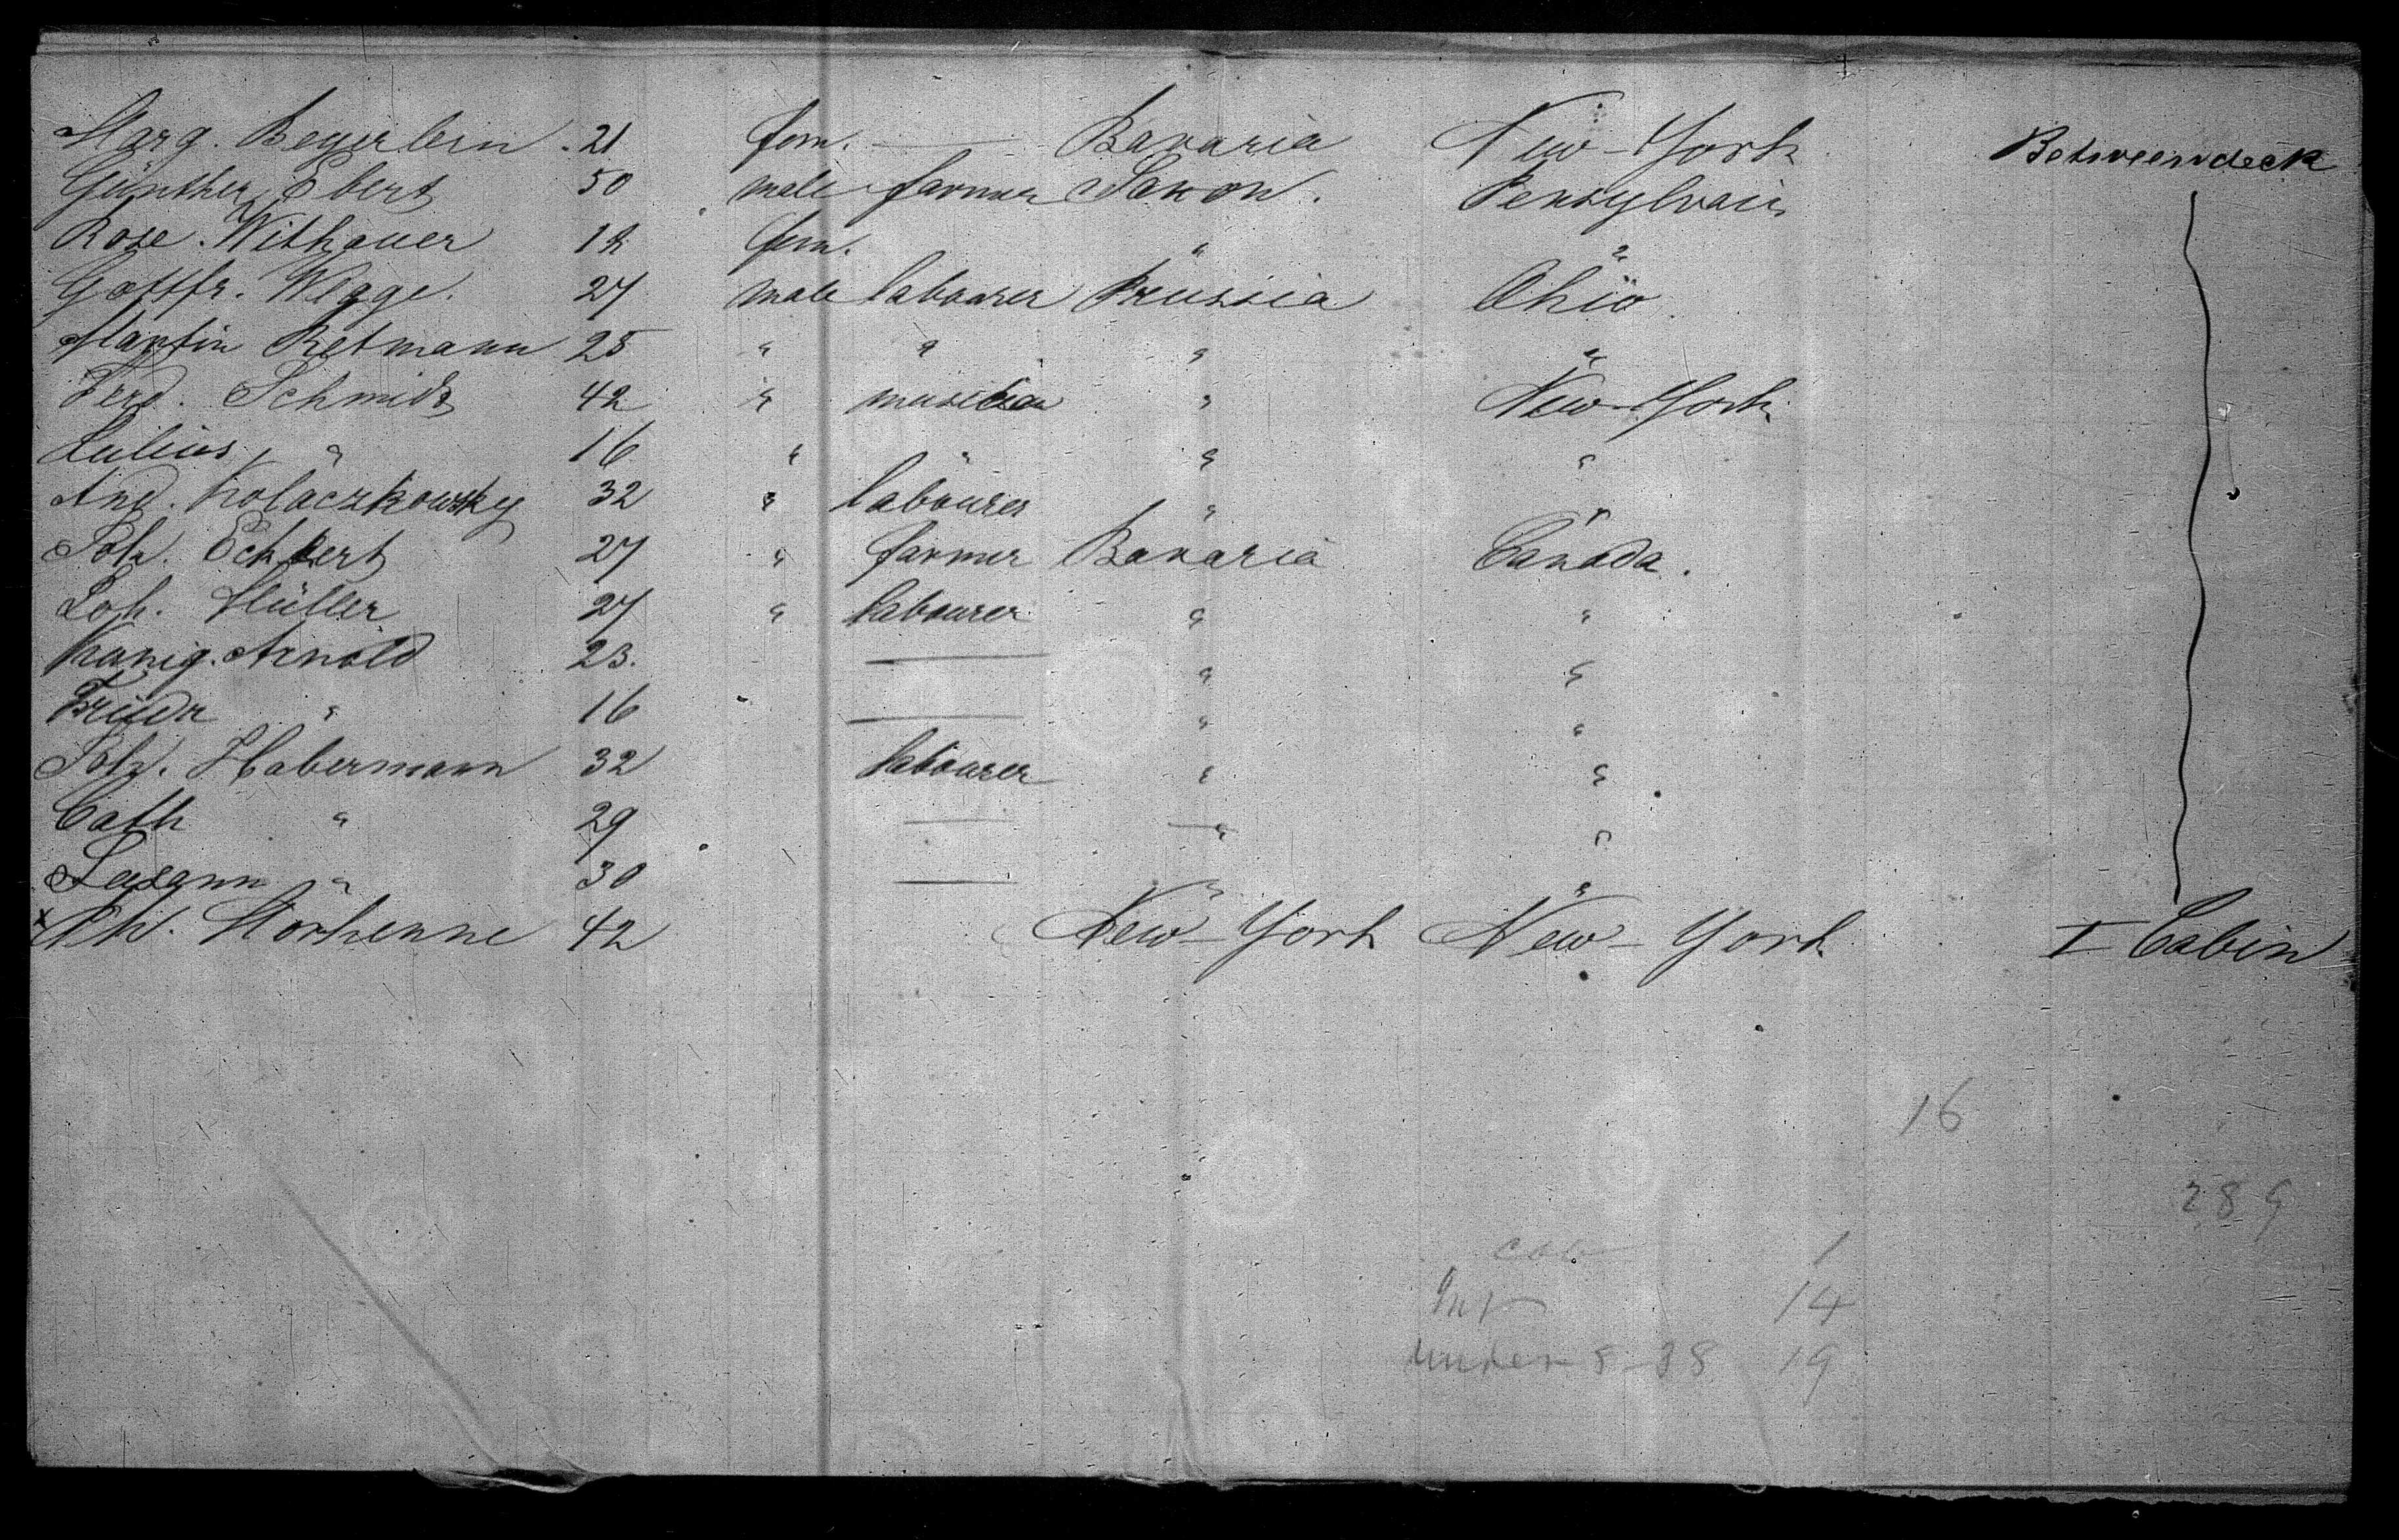 Marg. Beyerlein 21 fem. — Bavaria New-York Betweendeck
Günther Ebert 50 male farmer Saxon. Pensylvain
Rose Withauer 18 fem. " "
Gottfr. Wegge. 27 male labourer Prussia Ohio
Martin Retmann 25 " " " "
Ferd. Schmidt 42 " musician " New-York
Julius " 16 " " " "
And. Kolaczkowsky 32 " labourer " "
Joh. Eckbert 27 " farmer Bavaria Canada.
Joh. Müller 27 " labourer " "
Kunig. Arnold 23. — " "
Friedr " 16 — " "
Joh. Habermann 32 labourer " "
Cath " 29 — " "
Susann " 30 — " "
x Morhenne 42 New-York New-York I Cabin
16
289
cab 1
Inf 14
under 8 38 19